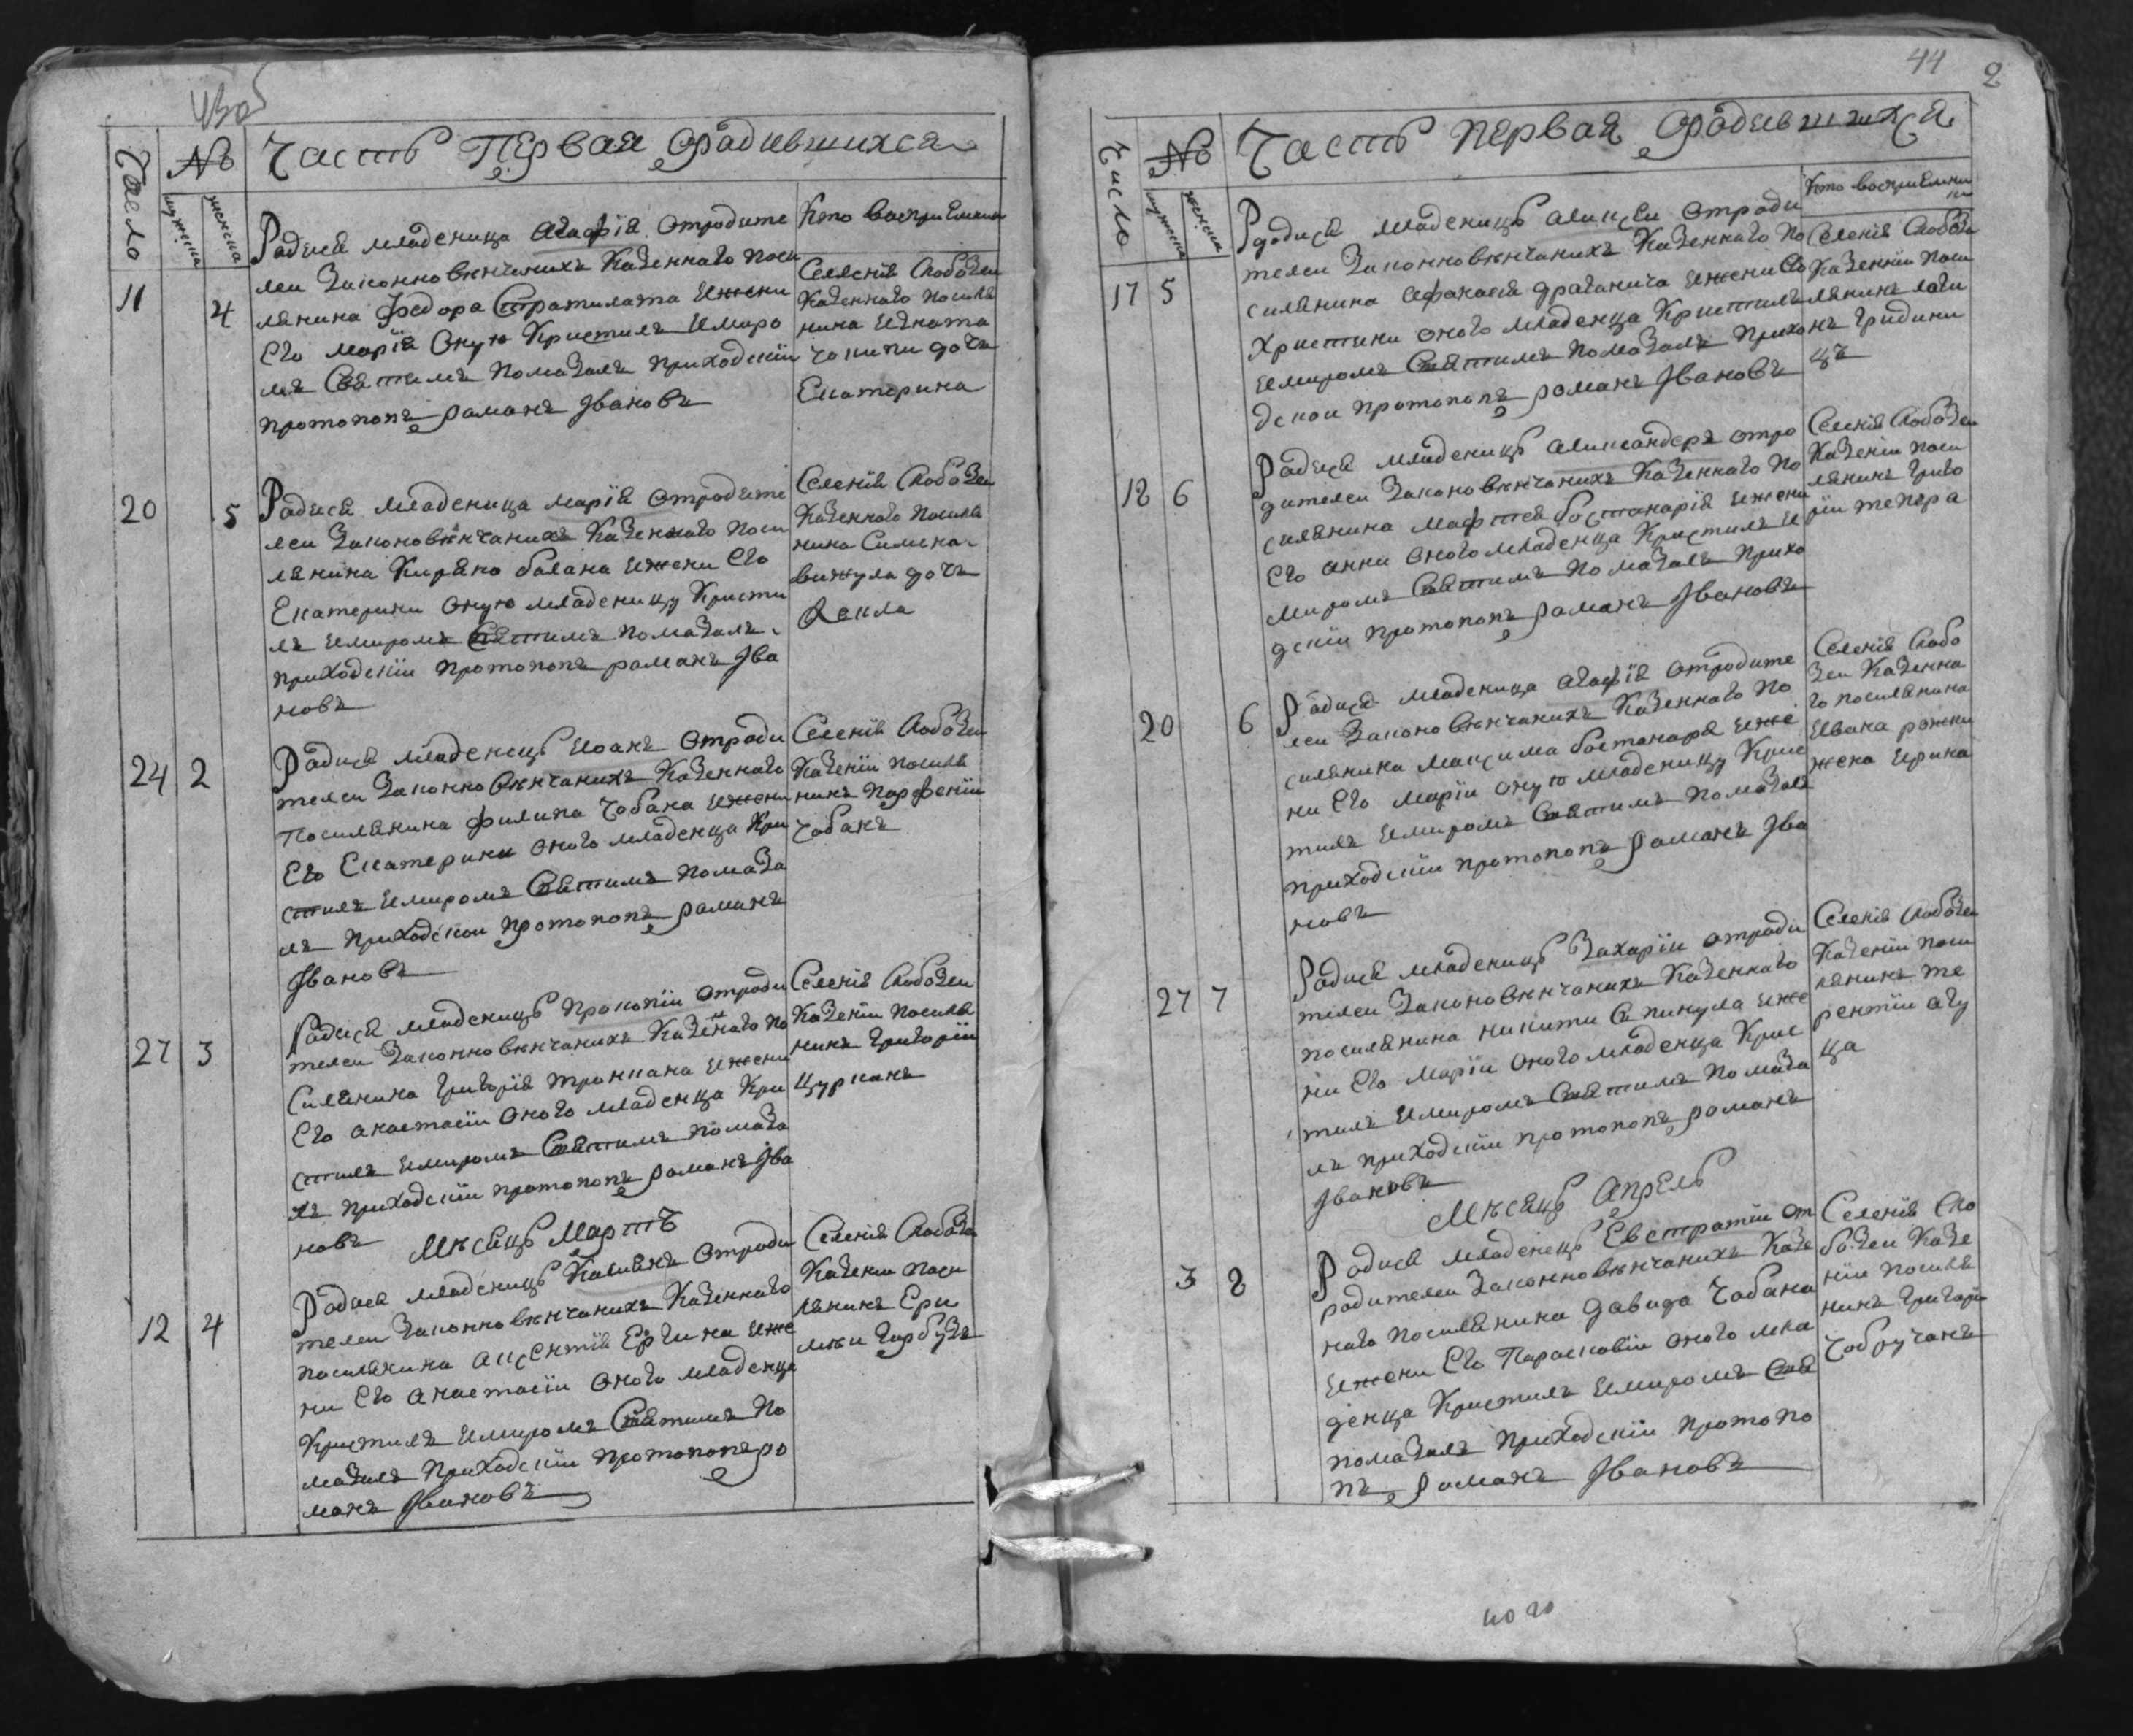 43об
Число
№
мужеска
женска
Часть Первая ѡродившихся
Кто Восприемники
11
4
Родися младеница Агафїя отродите
лей Законно вѣнчаних Казеннаго посе
лянина Федора Стратилата ижени
Его марїи Оную Кристилъ имиро
мъ Святимъ помазалъ приходскїи
протопопъ романъ Ивановъ
Селенїя Слободзеи
Казеннаго поселя
нина Игната
дочъ
Екатерина
20
5
Родися младеница марїя отродите
лей Законовѣнчаних Казеннаго посе
лянина Кирѣяко балана ижени Его
Екатерини Оную младеницу Кристи
лъ имиромъ Святимъ помазалъ
приходскїи протопопъ романъ Ива
новъ
Селенїя Слободзеи
Казеннаго поселя
нина Симиона
винтула дочъ
Ѳекла
24
2
Родися младенецъ Иоанъ отроди
телеи Законно вѣнчанихъ Казеннаго
поселянина филипа Чобана ижени
Его Екатерини Оного младенца Кри
стилъ имиромъ Святимъ помаза
лъ приходскои протопопъ романъ
Ивановъ
Селенїя Слободзеи
Казенїи поселя
нинъ Парфенїи
Чобанъ
27
3
Родися младеницъ Прокопїи отроди
телеи Законно вѣнчанихъ Казеннаго по
Силянина Григорїя транкана ижени
Его анастасїи Оного младенца Кри
стилъ имиромъ Святимъ помаза
лъ приходскїи протопопъ романъ Ива
новъ
Селенїя Слободзеи
Казенїи поселя
нинъ Григорїи
Цурканъ
Мѣсяцъ Мартъ
12
4
Родися младеницъ Касиянъ отроди
телеи Законно вѣнчанихъ Казеннаго
поселянина Аксентїя иже
ни Его анастасїи Оного младенца
Кристилъ имиромъ Святимъ по
мазалъ приходскїи протопопъ ро
манъ Ивановъ
Селенїя Слободзеи
Казенїи посе
лянинъ Ери
меи Гарбузъ
44
2
Число
№
мужеска
женска
Часть Первая ѡродившихся
Кто восприемни
ки
17
5
Родися младеницъ Аликсеи отроди
телеи Законно вѣнчанихъ Казеннаго по
силянина Афанасїя драганича ижени Его
Христини Оного младенца Кристилъ
имиромъ Святимъ помазалъ Прихо
дскои протопопъ романъ Ивановъ
Селенїя Слободзеи
Казеннїи посе
лянинъ логи
нъ Гридини
цъ
18
6
Родися младеницъ Аликсандеръ отро
дителеи Законо вѣнчанихъ Казеннаго по
силянина Мафтея ботнарїя ижени
Его анни Оного младенца Кристилъ и
миромъ Святимъ помазалъ Прихо
дскїи протопопъ романъ Ивановъ
Селенїя Слободзеи
Казенїи посе
лянинъ Григо
рїи тепера
20
6
Родися младеница Агафїя отродите
леи Законо вѣнчанихъ Казеннаго по
силянина Максима ботнаря иже
ни Его марїи Оную младеницу Крис
тилъ имиромъ Святимъ помазалъ
приходскїи протопопъ романъ Ива
новъ
Селенїя Слобо
дзеи Казенна
го поселянина
Ивана рошки
жена Ирина
27
7
Родися младеницъ Захарїи отроди
телеи Законо вѣнчанихъ Казеннаго
поселянина никити Спинула иже
ни Его марїи Оного младенца Крис
тилъ имиромъ Святимъ помаза
лъ приходскїи протопопъ романъ
Ивановъ
Селенїя Слободзеи
Казенїи посе
лянинъ те
рентїи агу
ца
Мѣсяцъ Апрель
3
8
Родися младенецъ Евстратїи от
родителеи Законно вѣнчанихъ Казе
наго поселянина Давида Чобана
ижени Его Параскевїи Оного мла
денца Кристилъ имиромъ Свя
помазалъ Приходскїи протопо
пъ романъ Ивановъ
Селенїя Сло
бодзеи Казе
нїи поселя
нинъ Григорїи
Чобручанъ